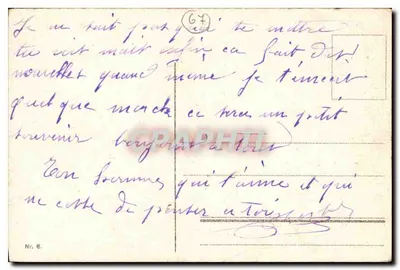 Je ne sait pas qui te mettre
tu voit mait enfin ca fait des
nouvelles quand même je t'envoit
quelque ce sera un petit
souvenir bonjour a tous
Ton homme qui t'aime et qui
ne cesse de penser a toi
67
CPAPHTI
Nr. 6.